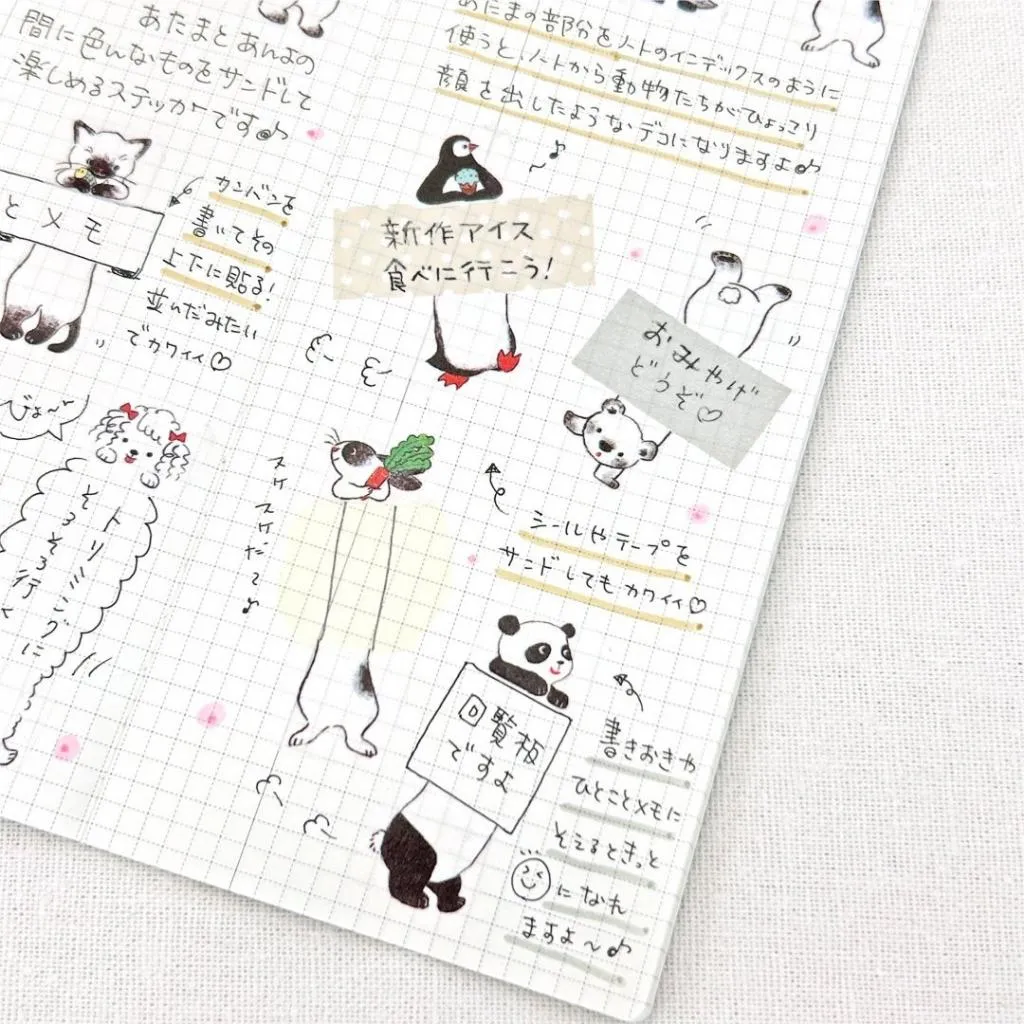 あたまとあんよの
間に色んなものをサンドして
楽しめるステッカーです♪
あたまの部分をノートのインデックスのように
使うと、ノートから動物たちがひょっこり
顔を出したようなデコになりますよ♪
とメモ
カンバンを
書いてその
上下に貼る!
並んだみたい
でカワイイ♡
新作アイス
食べに行こう!
おみやげ
どうぞ♡
びよ〜ん
トリミングに
そろそろ行く
スイスイだ〜♪
シールやテープを
サンドしてもカワイイ♡
回覧板
ですよ
書きおきや
ひとことメモに
そえるときっと
になれ
ますよ〜♪